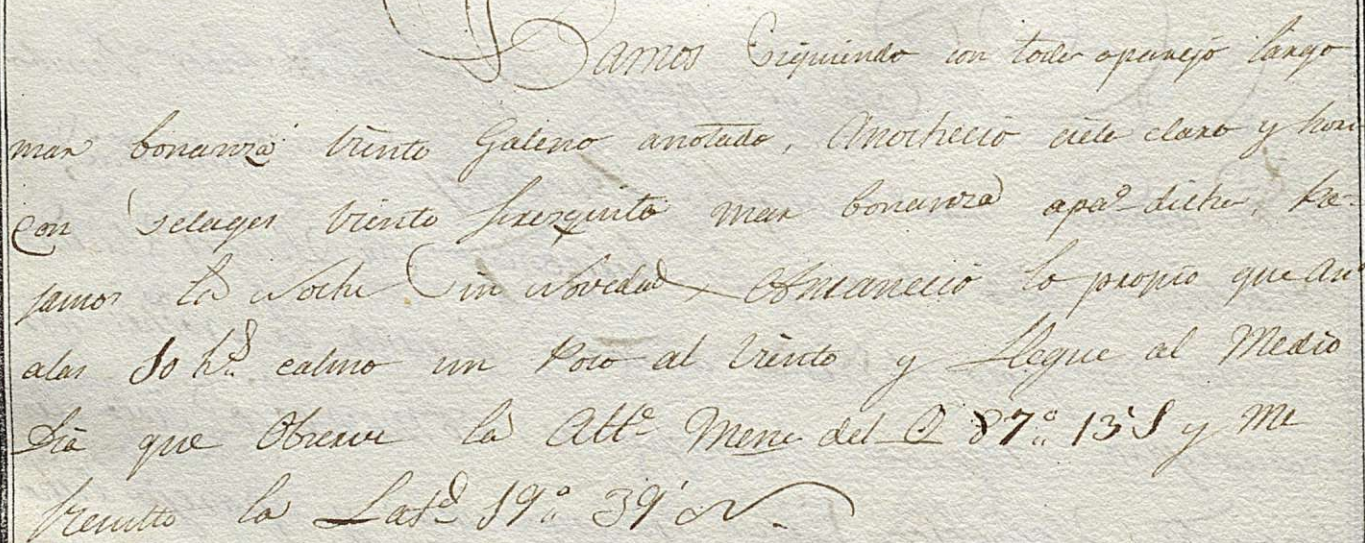 Vamos Siguiendo con todo aparejo largo
mar bonanza viento Galeno anotado, Anocheció cielo claro y hori
con Selages viento frezquito mar bonanza apaº dicho, Pa-
samos la Noche Sin Novedad, Amaneció lo propio que an
alas 10 hs calmo un Poco al viento y llegue al Medio
Dia que Oberve la Alte Mene del O 87º 13' S y Me
Resulto la Latd 19º 39' N.